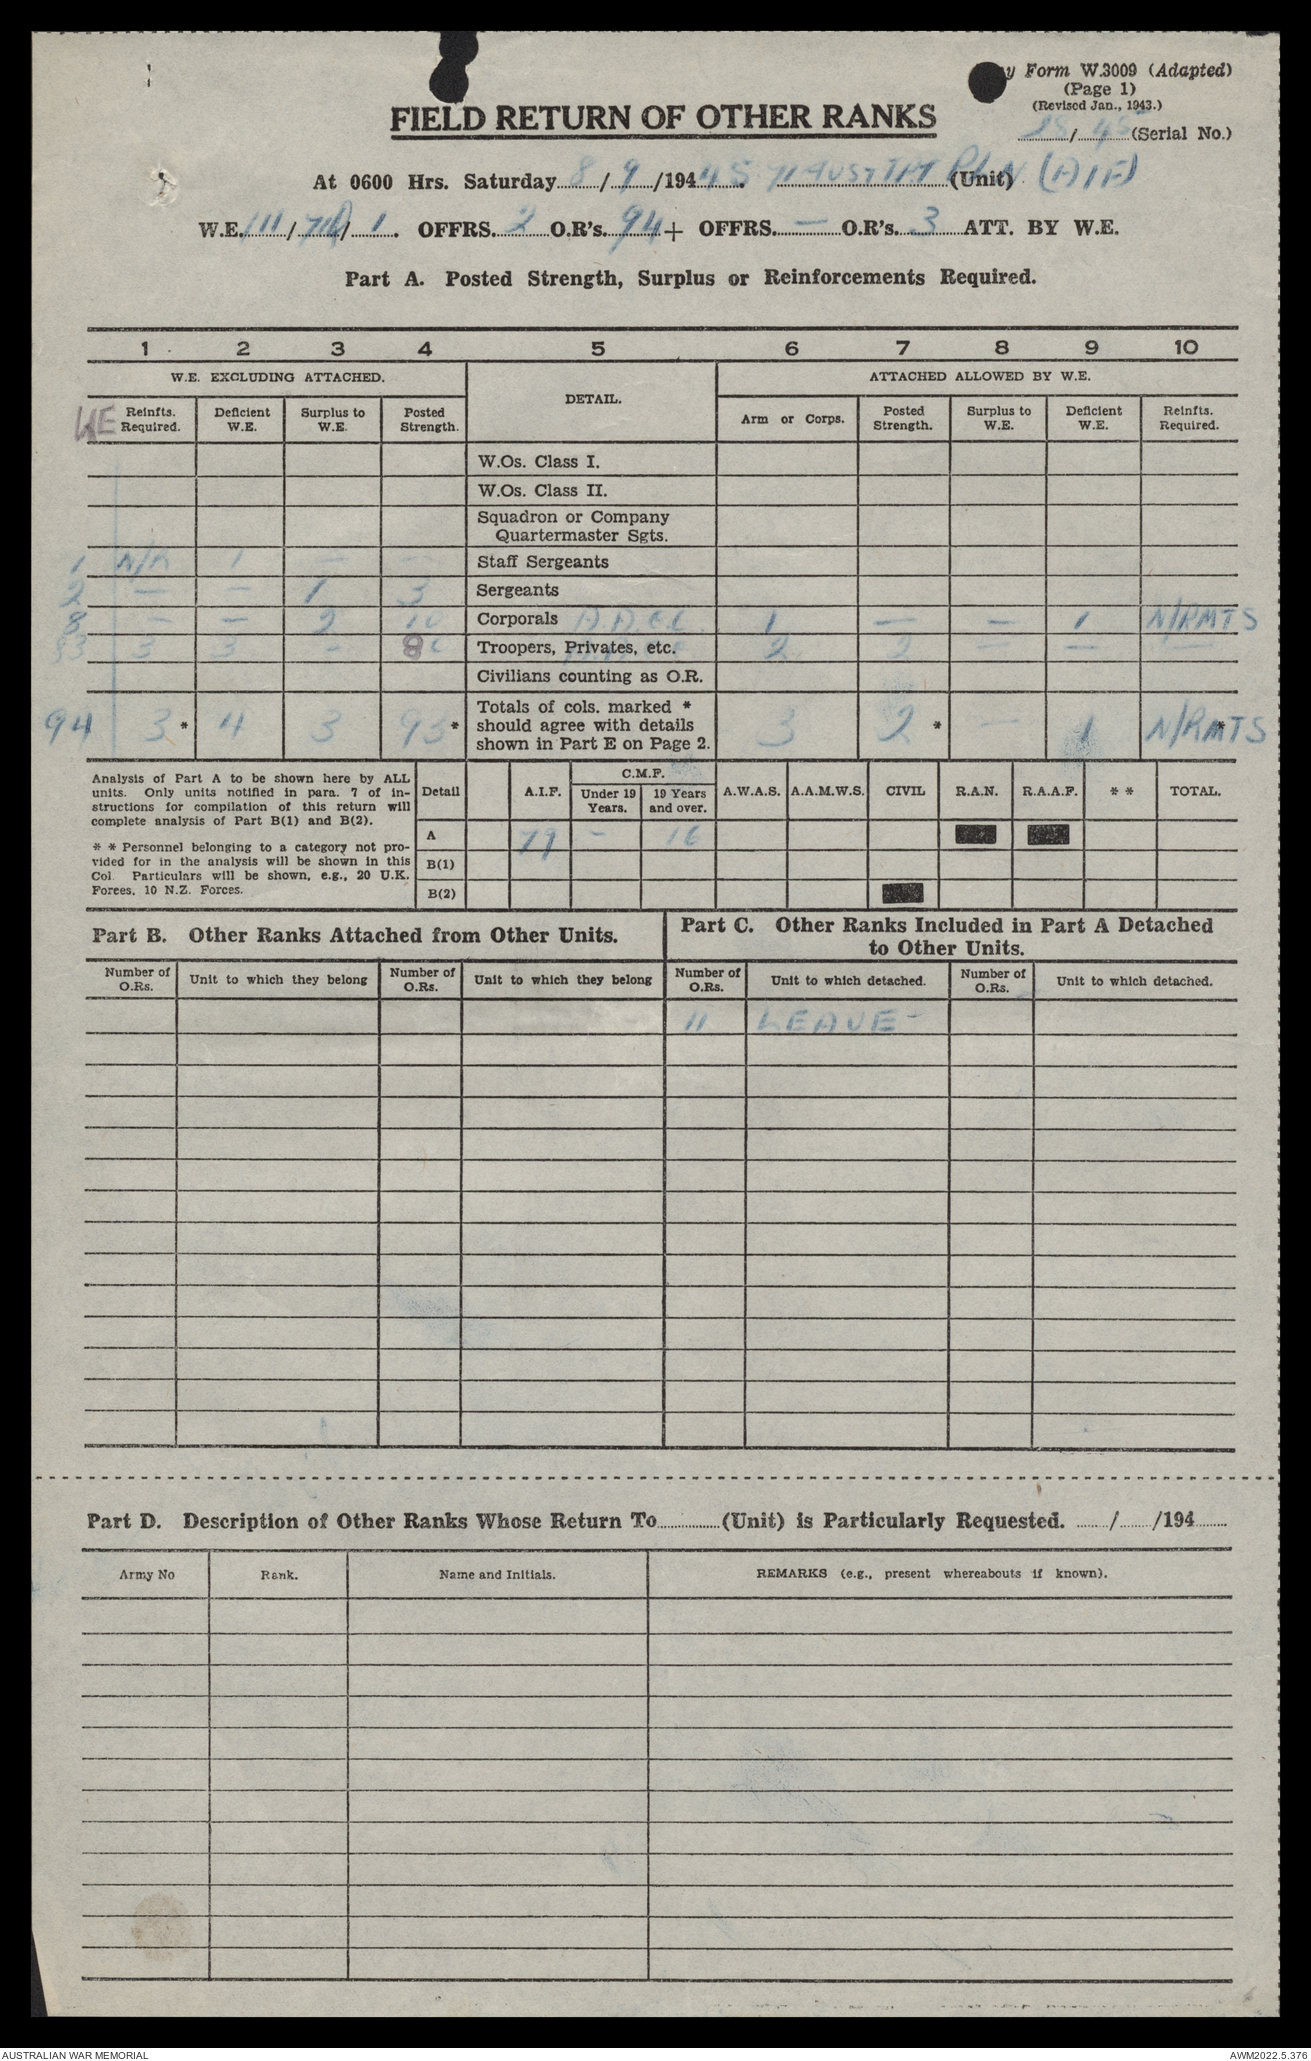 y Form W.3009 (Adapted)
(Page 1)
(Revised Jan., 1943.)
FIELD RETURN OF OTHER RANKS
/ 45 (Serial No.)
At 0600 Hrs. Saturday 8 / 9 /1945. 71 AUST TPT PLN (Unit) (AIF)
W.E. 111 / / 1 . OFFRS. 2 O.R's. 94 + OFFRS. — O.R's. 3 ATT. BY W.E.
Part A. Posted Strength, Surplus or Reinforcements Required.
1 2 3 4 5 6 7 8 9 10
W.E. EXCLUDING ATTACHED. DETAIL. ATTACHED ALLOWED BY W.E.
WE Reinfts. Required. Deficient W.E. Surplus to W.E. Posted Strength. Arm or Corps. Posted Strength. Surplus to W.E. Deficient W.E. Reinfts. Required.
W.Os. Class I.
W.Os. Class II.
Squadron or Company
Quartermaster Sgts.
1 N/R 1 — — Staff Sergeants
2 — — 1 3 Sergeants
8 — — 2 10 Corporals A.A.C.C. 1 — — 1 N/RMTS
83 3 3 - 8 Troopers, Privates, etc. 2 2 — — —
Civilians counting as O.R.
94 3 * 4 3 95 * Totals of cols. marked * 3 2 * — 1 N/RMTS *
should agree with details
shown in Part E on Page 2.
Analysis of Part A to be shown here by ALL
units. Only units notified in para. 7 of in-
structions for compilation of this return will
complete analysis of Part B(1) and B(2).
* * Personnel belonging to a category not pro-
vided for in the analysis will be shown in this
Col. Particulars will be shown, e.g., 20 U.K.
Forces, 10 N.Z. Forces.
Detail A.I.F. C.M.F. Under 19 Years. 19 Years and over. A.W.A.S. A.A.M.W.S. CIVIL R.A.N. R.A.A.F. * * TOTAL.
A 79 — 16
B(1)
B(2)
Part B. Other Ranks Attached from Other Units.
Part C. Other Ranks Included in Part A Detached
to Other Units.
Number of O.Rs. Unit to which they belong Number of O.Rs. Unit to which they belong Number of O.Rs. Unit to which detached. Number of O.Rs. Unit to which detached.
11 LEAVE -
Part D. Description of Other Ranks Whose Return To (Unit) is Particularly Requested. / /194
Army No Rank. Name and Initials. REMARKS (e.g., present whereabouts if known).
AUSTRALIAN WAR MEMORIAL
AWM2022.5.376